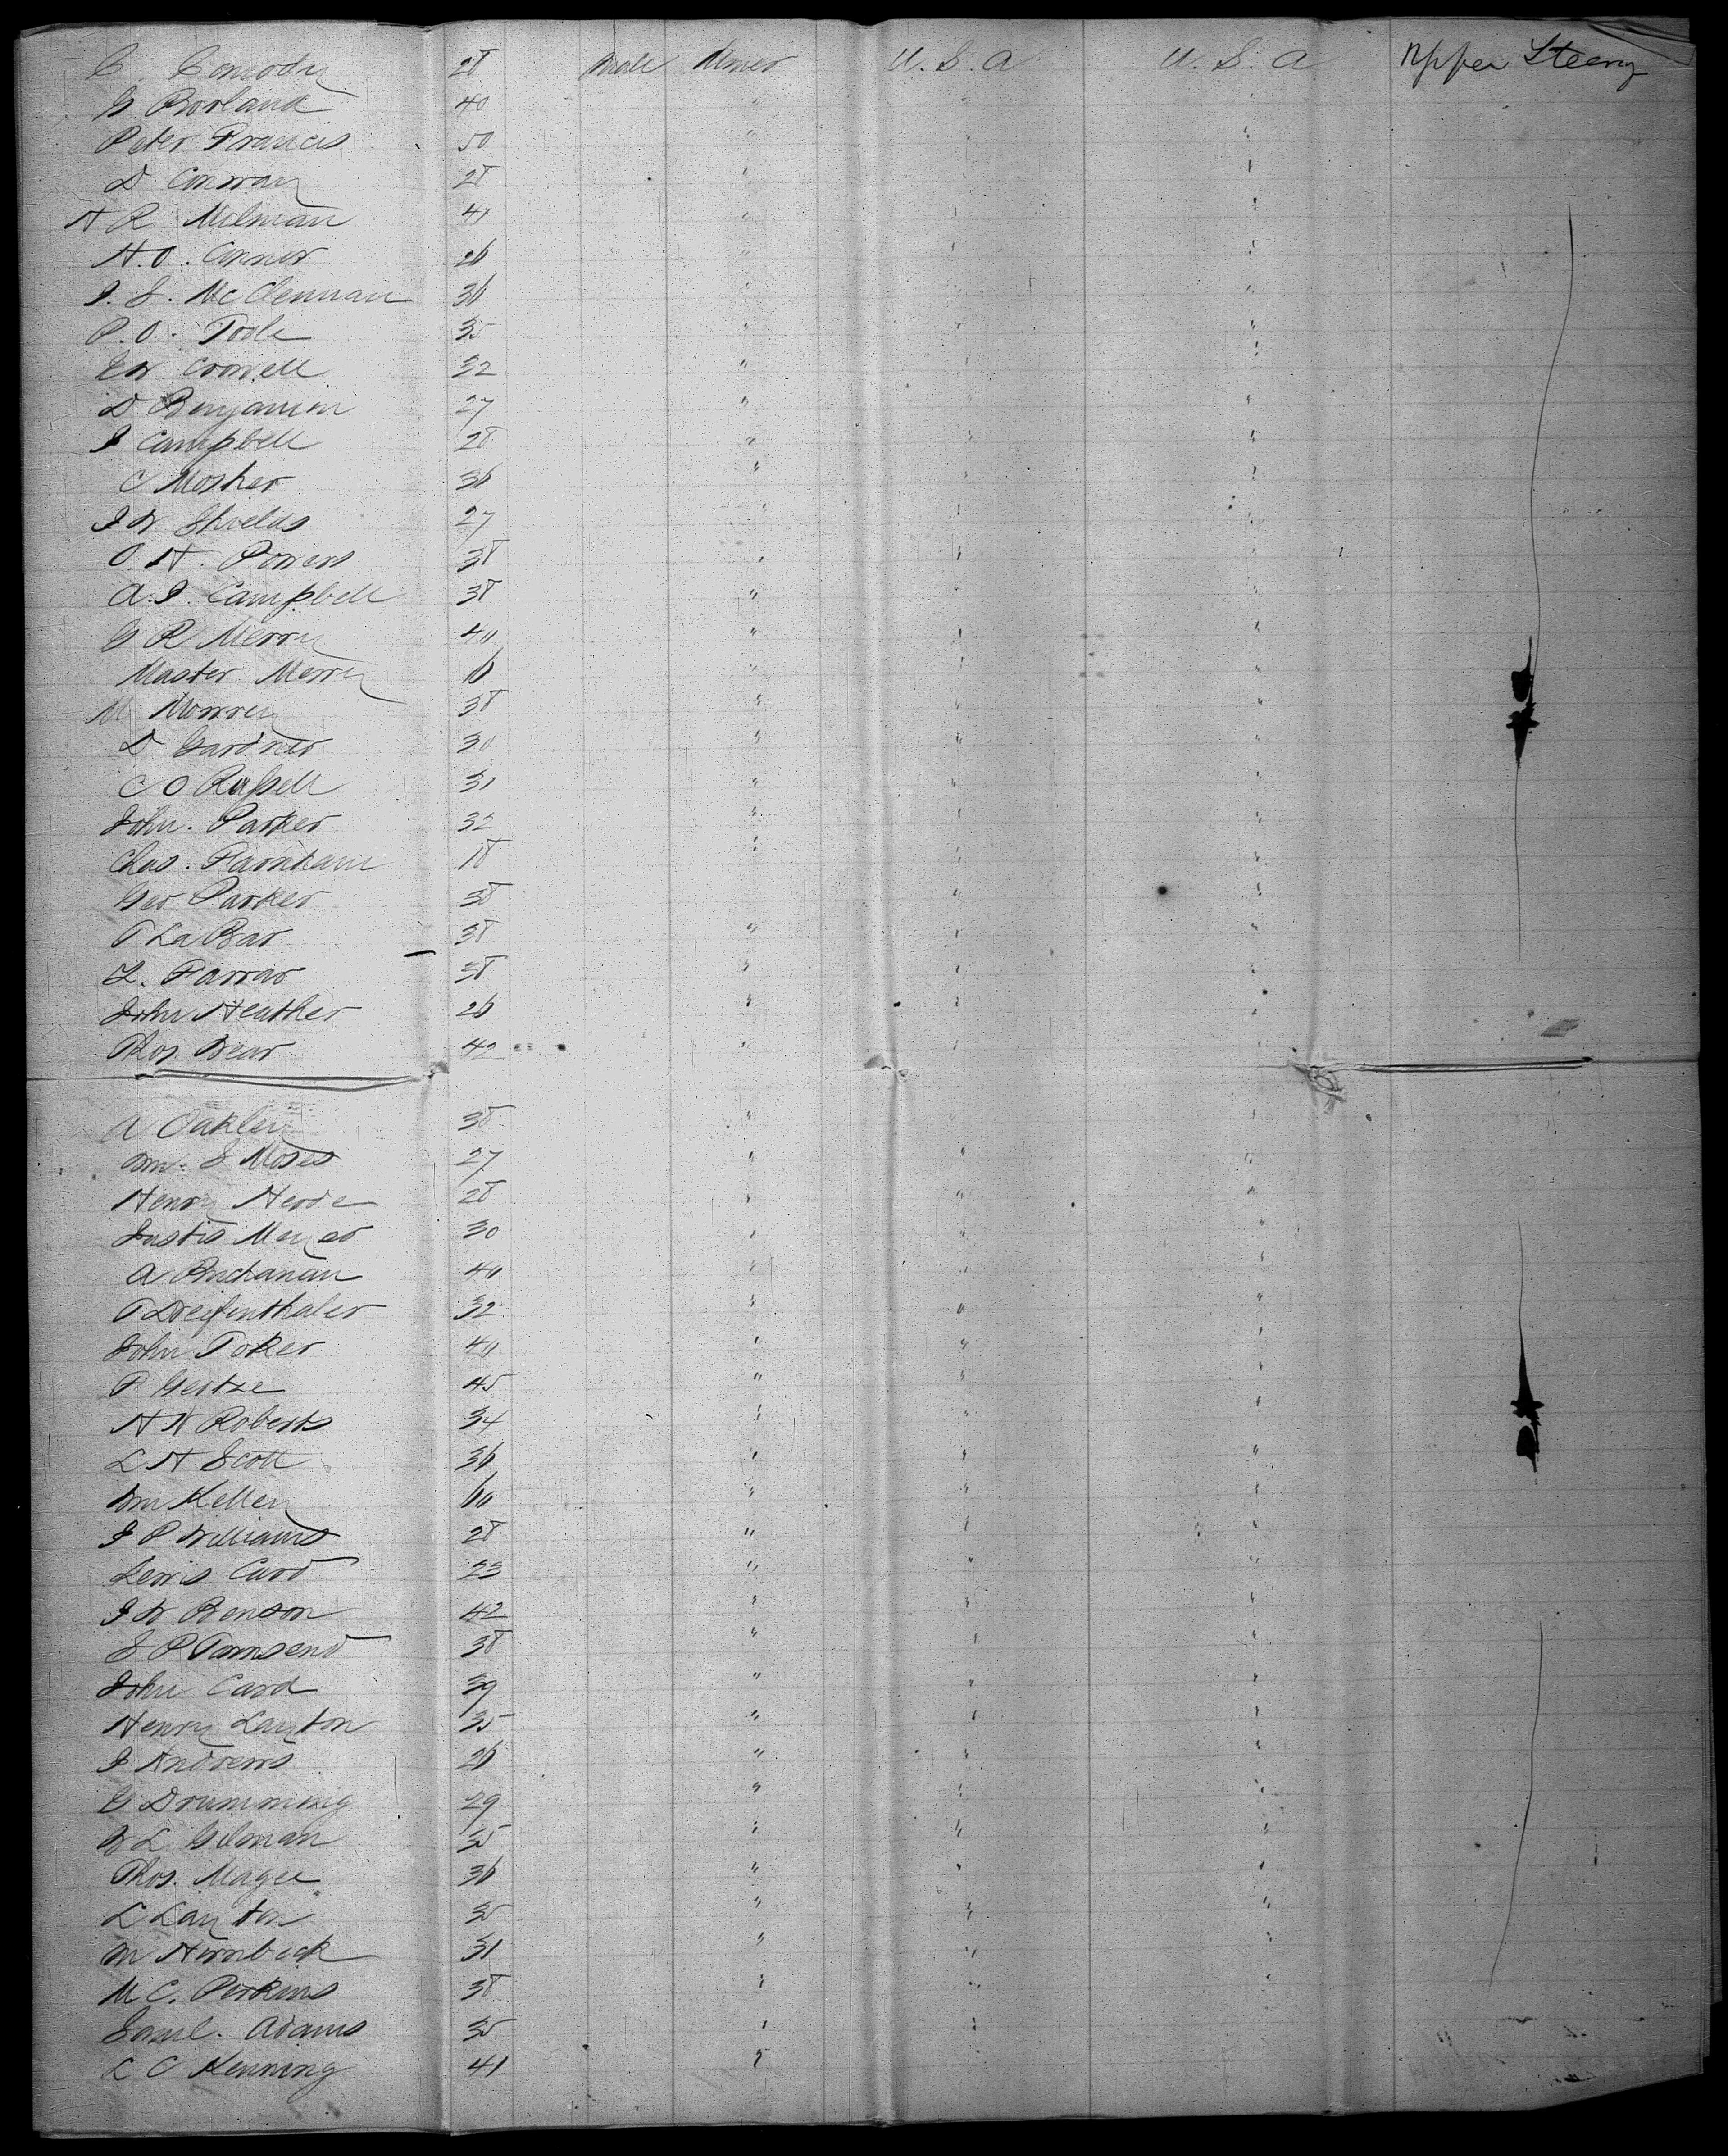 C. Comody 28 Male Miner U. S. A U. S. A Upper Steerg
G Borland 40 " " "
Peter Francis 50 " " "
D Conway 28 " " "
H R Milman 41 " " "
H. O. Connor 26 " " "
J. S. McClennan 36 " " "
P. O. Toole 35 " " "
Ew Crowell 32 " " "
D Benjamin 27 " " "
J Campbell 28 " " "
C Mosher 36 " " "
J W Shields 27 " " "
O. H. Powers 38 " " "
A. J. Campbell 38 " " "
G R Merry 40 " " "
Master Merry 16 " " "
M Morrey 38 " " "
D Gardner 30 " " "
C O Russell 31 " " "
John. Parker 32 " " "
Chas. Farnham 18 " " "
Geo Parker 38 " "
T La Bar 38 " " "
L. Farrar 38 " " "
John Heather 26 " " "
Thos Wear 42 " " "
A Oakley 38 " " "
Wm. S Moses 27 " " "
Henry Herde 28 " " "
Justis Meyer 30 " " "
A Buchanan 40 " " "
T Dreifenthaler 32 " " "
John Toker 40 " " "
P Gertze 45 " " "
H W Roberts 34 " " "
L H Scott 36 " " "
Wm Kelley 60 " " "
J P Williams 28 " " "
Lewis Card 23 " " "
J W Benson 42 " " "
S P Townsend 38 " " "
John Card 39 " " "
Henry Layton 35 " " "
J Andrews 26 " " "
G Drumming 29 " " "
W L Gilman 35 " " "
Thos. Magee 36 " " "
L Layton 35 " " "
M Hornbeck 31 " " "
M C. Perkins 38 " " "
Saml. Adams 35 " "
L C Henning 41 "